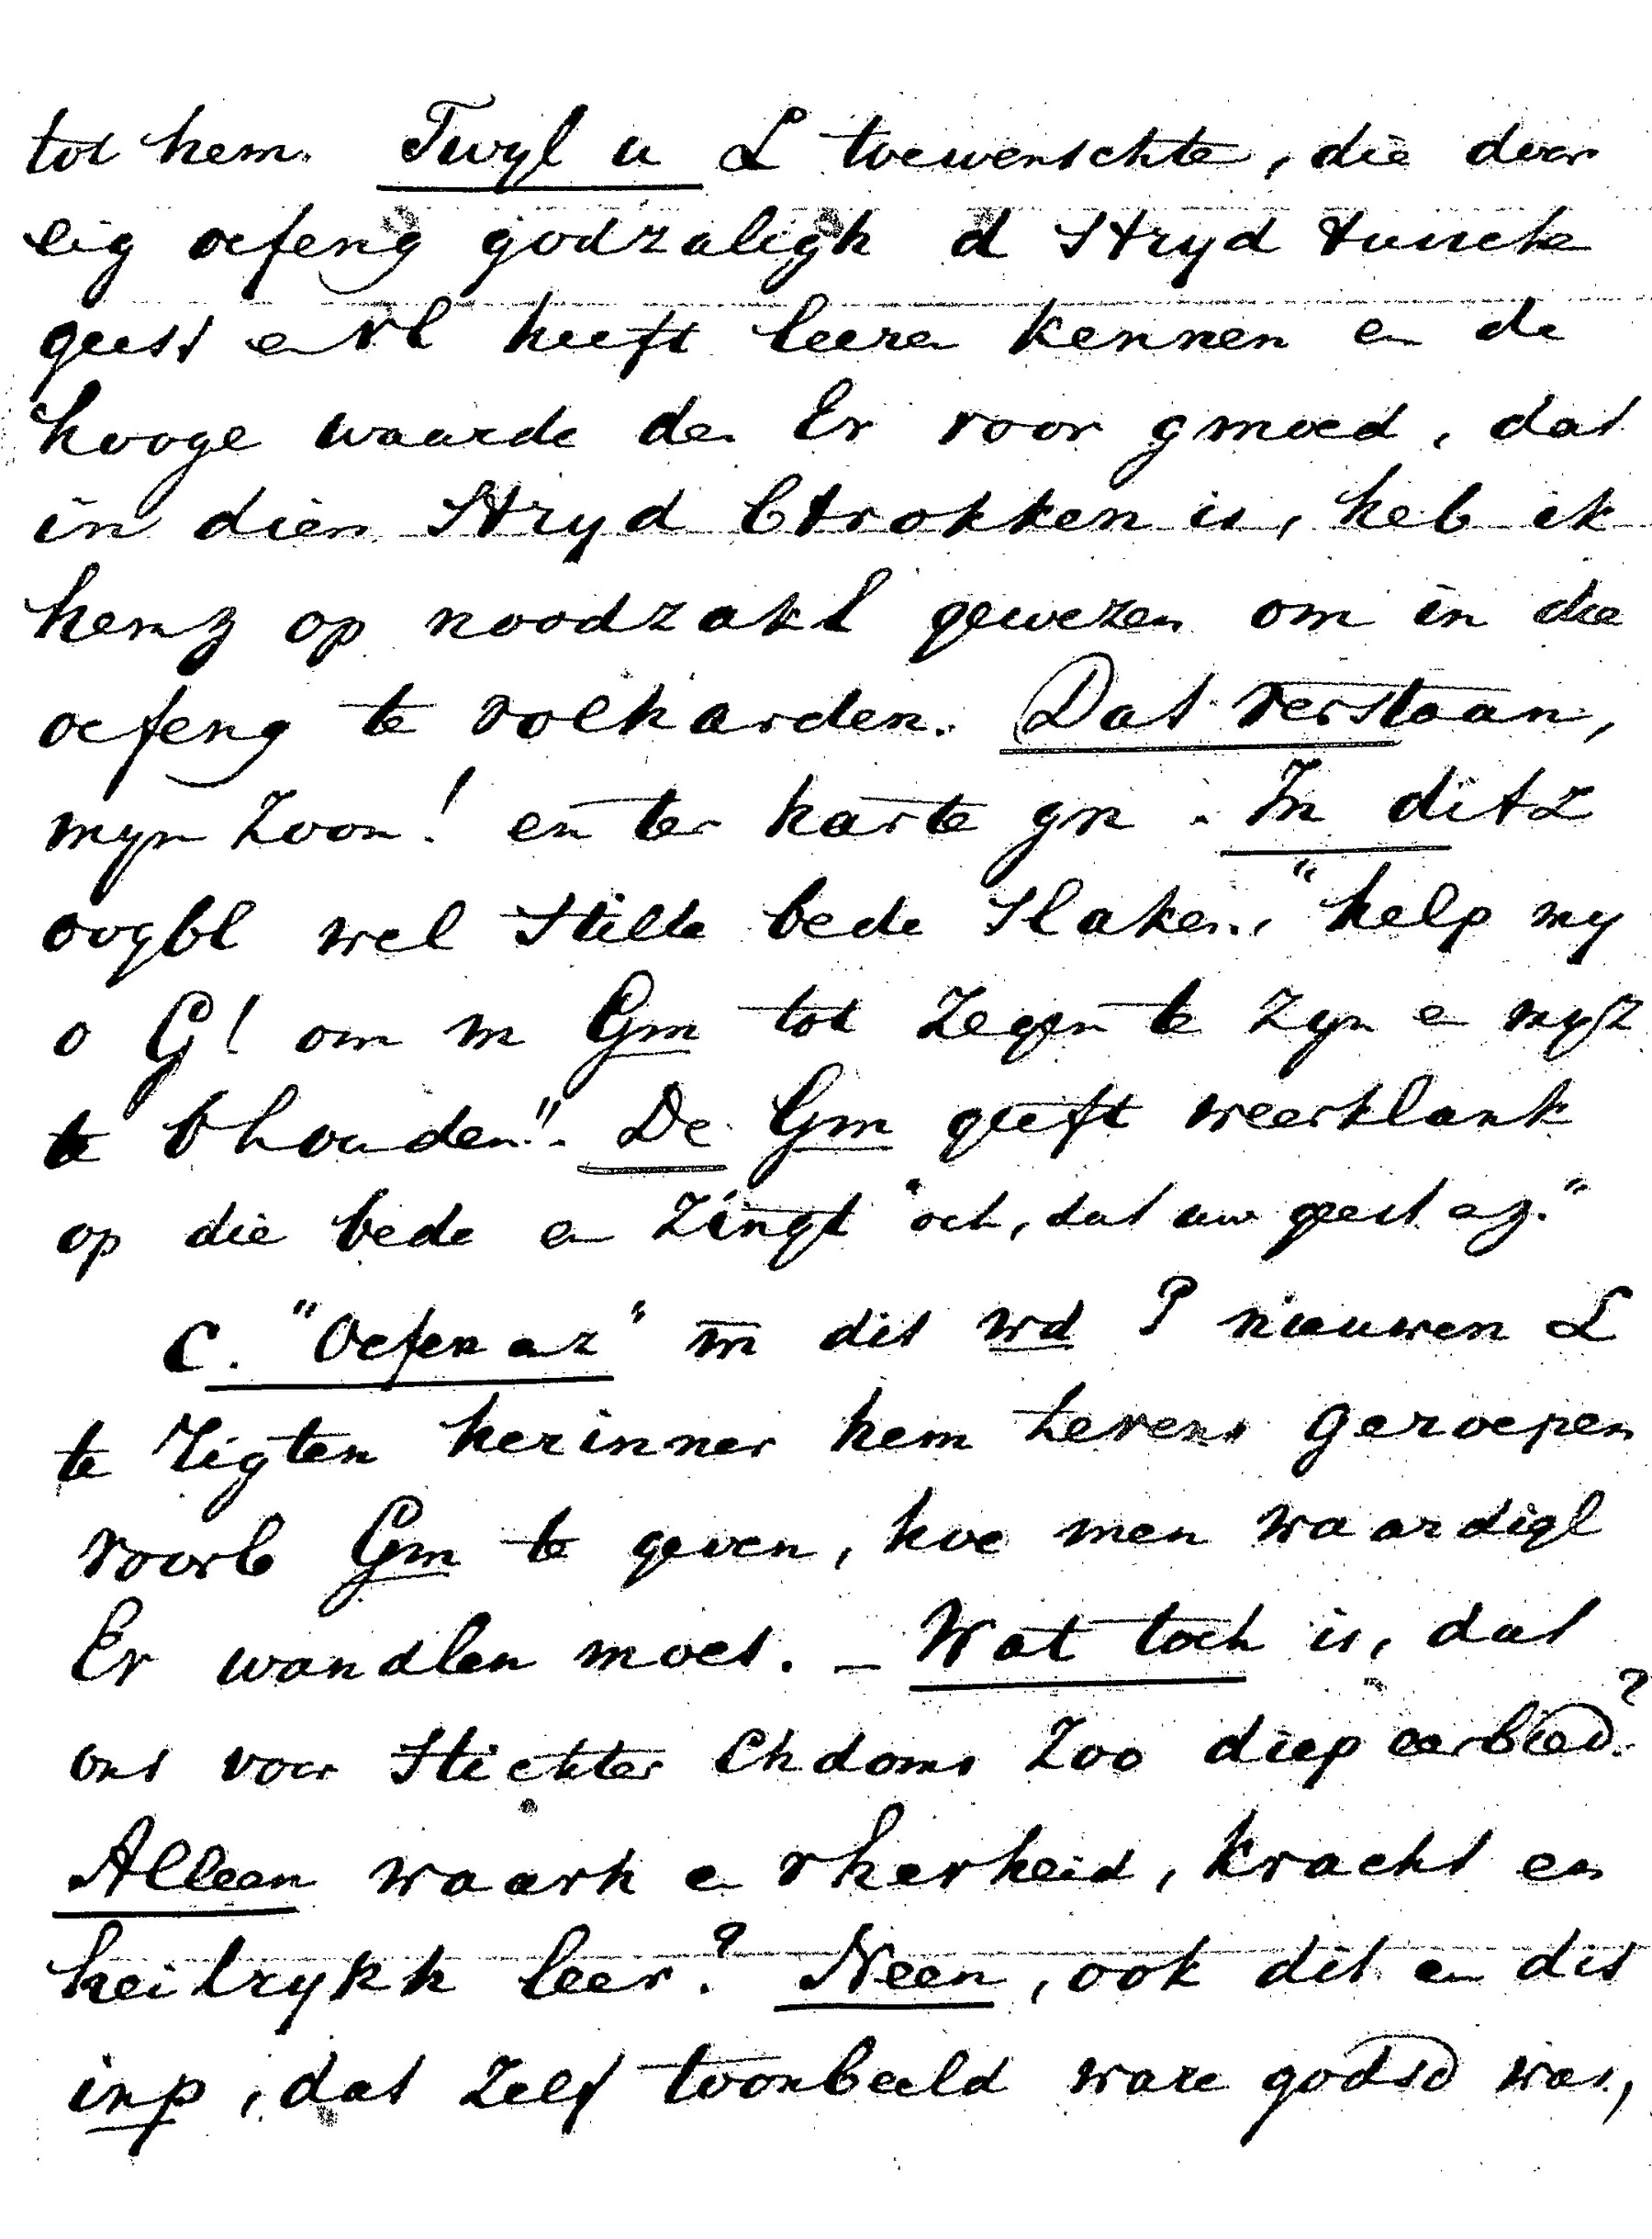 tot hem. Twyl u L toewenschte, die door
eig oefeng godzaligh d Stryd tussche
geest en vl heeft leeren kennen en de
hooge waarde de Er voor gmoed, dat
in dien Stryd btrokken is, heb ik
hemz op noodzakl gewezen om in die
oefeng te volharden. Dat verstaan,
myn Zoon! en ter harte gn. In dit z
oogbl wel Stille bede Slaken, "help my
o G! om m Gm tot Zegen te Zyn e myz
te bhouden". De Gm geeft weerklank
op die bede en Zingt "och, dat uw geest ez."
C. "Oefen az" m dit wd P nieuwen L
te rigten herinner hem tevens geroepen
voorb Gm te geven, hoe men waardigl
Er wandlen moet. – Wat toch is, dat
ons voor Stichter Chdoms Zoo diep eerbied?
Alleen waarh e vherheid, kracht en
heilrykh leer? Neen, ook dit en dit
inp, dat Zelf toonbeeld ware godsd was,